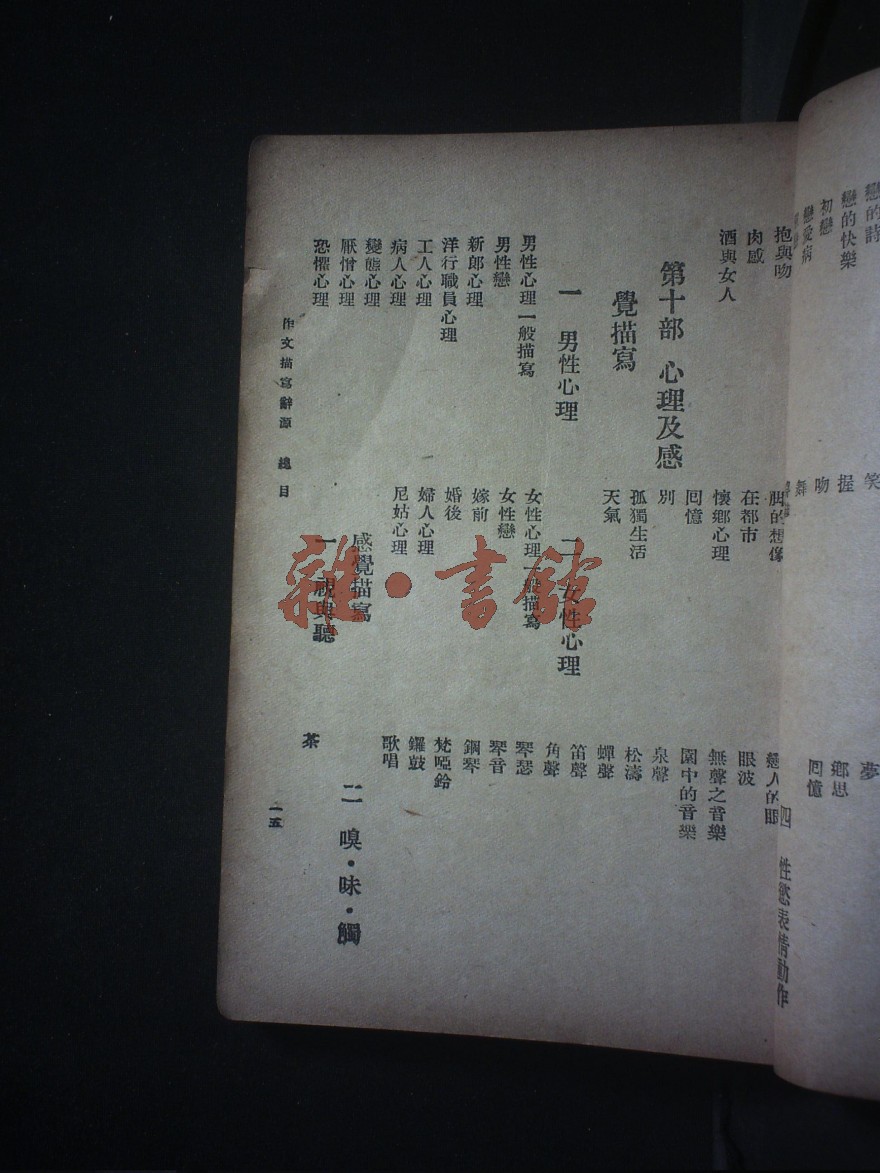 戀的詩
戀的快樂
初戀
戀愛病
笑
握
吻
舞
夢
鄉思
回憶
四 性慾表情動作
抱與吻
肉感
酒與女人
第十部 心理及感
覺描寫
一 男性心理
男性心理一般描寫
男性戀
新郎心理
洋行職員心理
工人心理
病人心理
變態心理
厭憎心理
恐懼心理
脚的想像
在都市
懷鄉心理
回憶
別
孤獨生活
天氣
二 女性心理
女性心理一般描寫
女性戀
嫁前
婚後
婦人心理
尼姑心理
感覺描寫
一 視與聽
戀人的眼
眼波
無聲之音樂
園中的音樂
泉聲
松濤
蟬聲
笛聲
角聲
琴瑟
琴音
鋼琴
梵啞鈴
鑼鼓
歌唱
二 嗅・味・觸
茶
作文描寫辭源 總目
一五
雜・書館